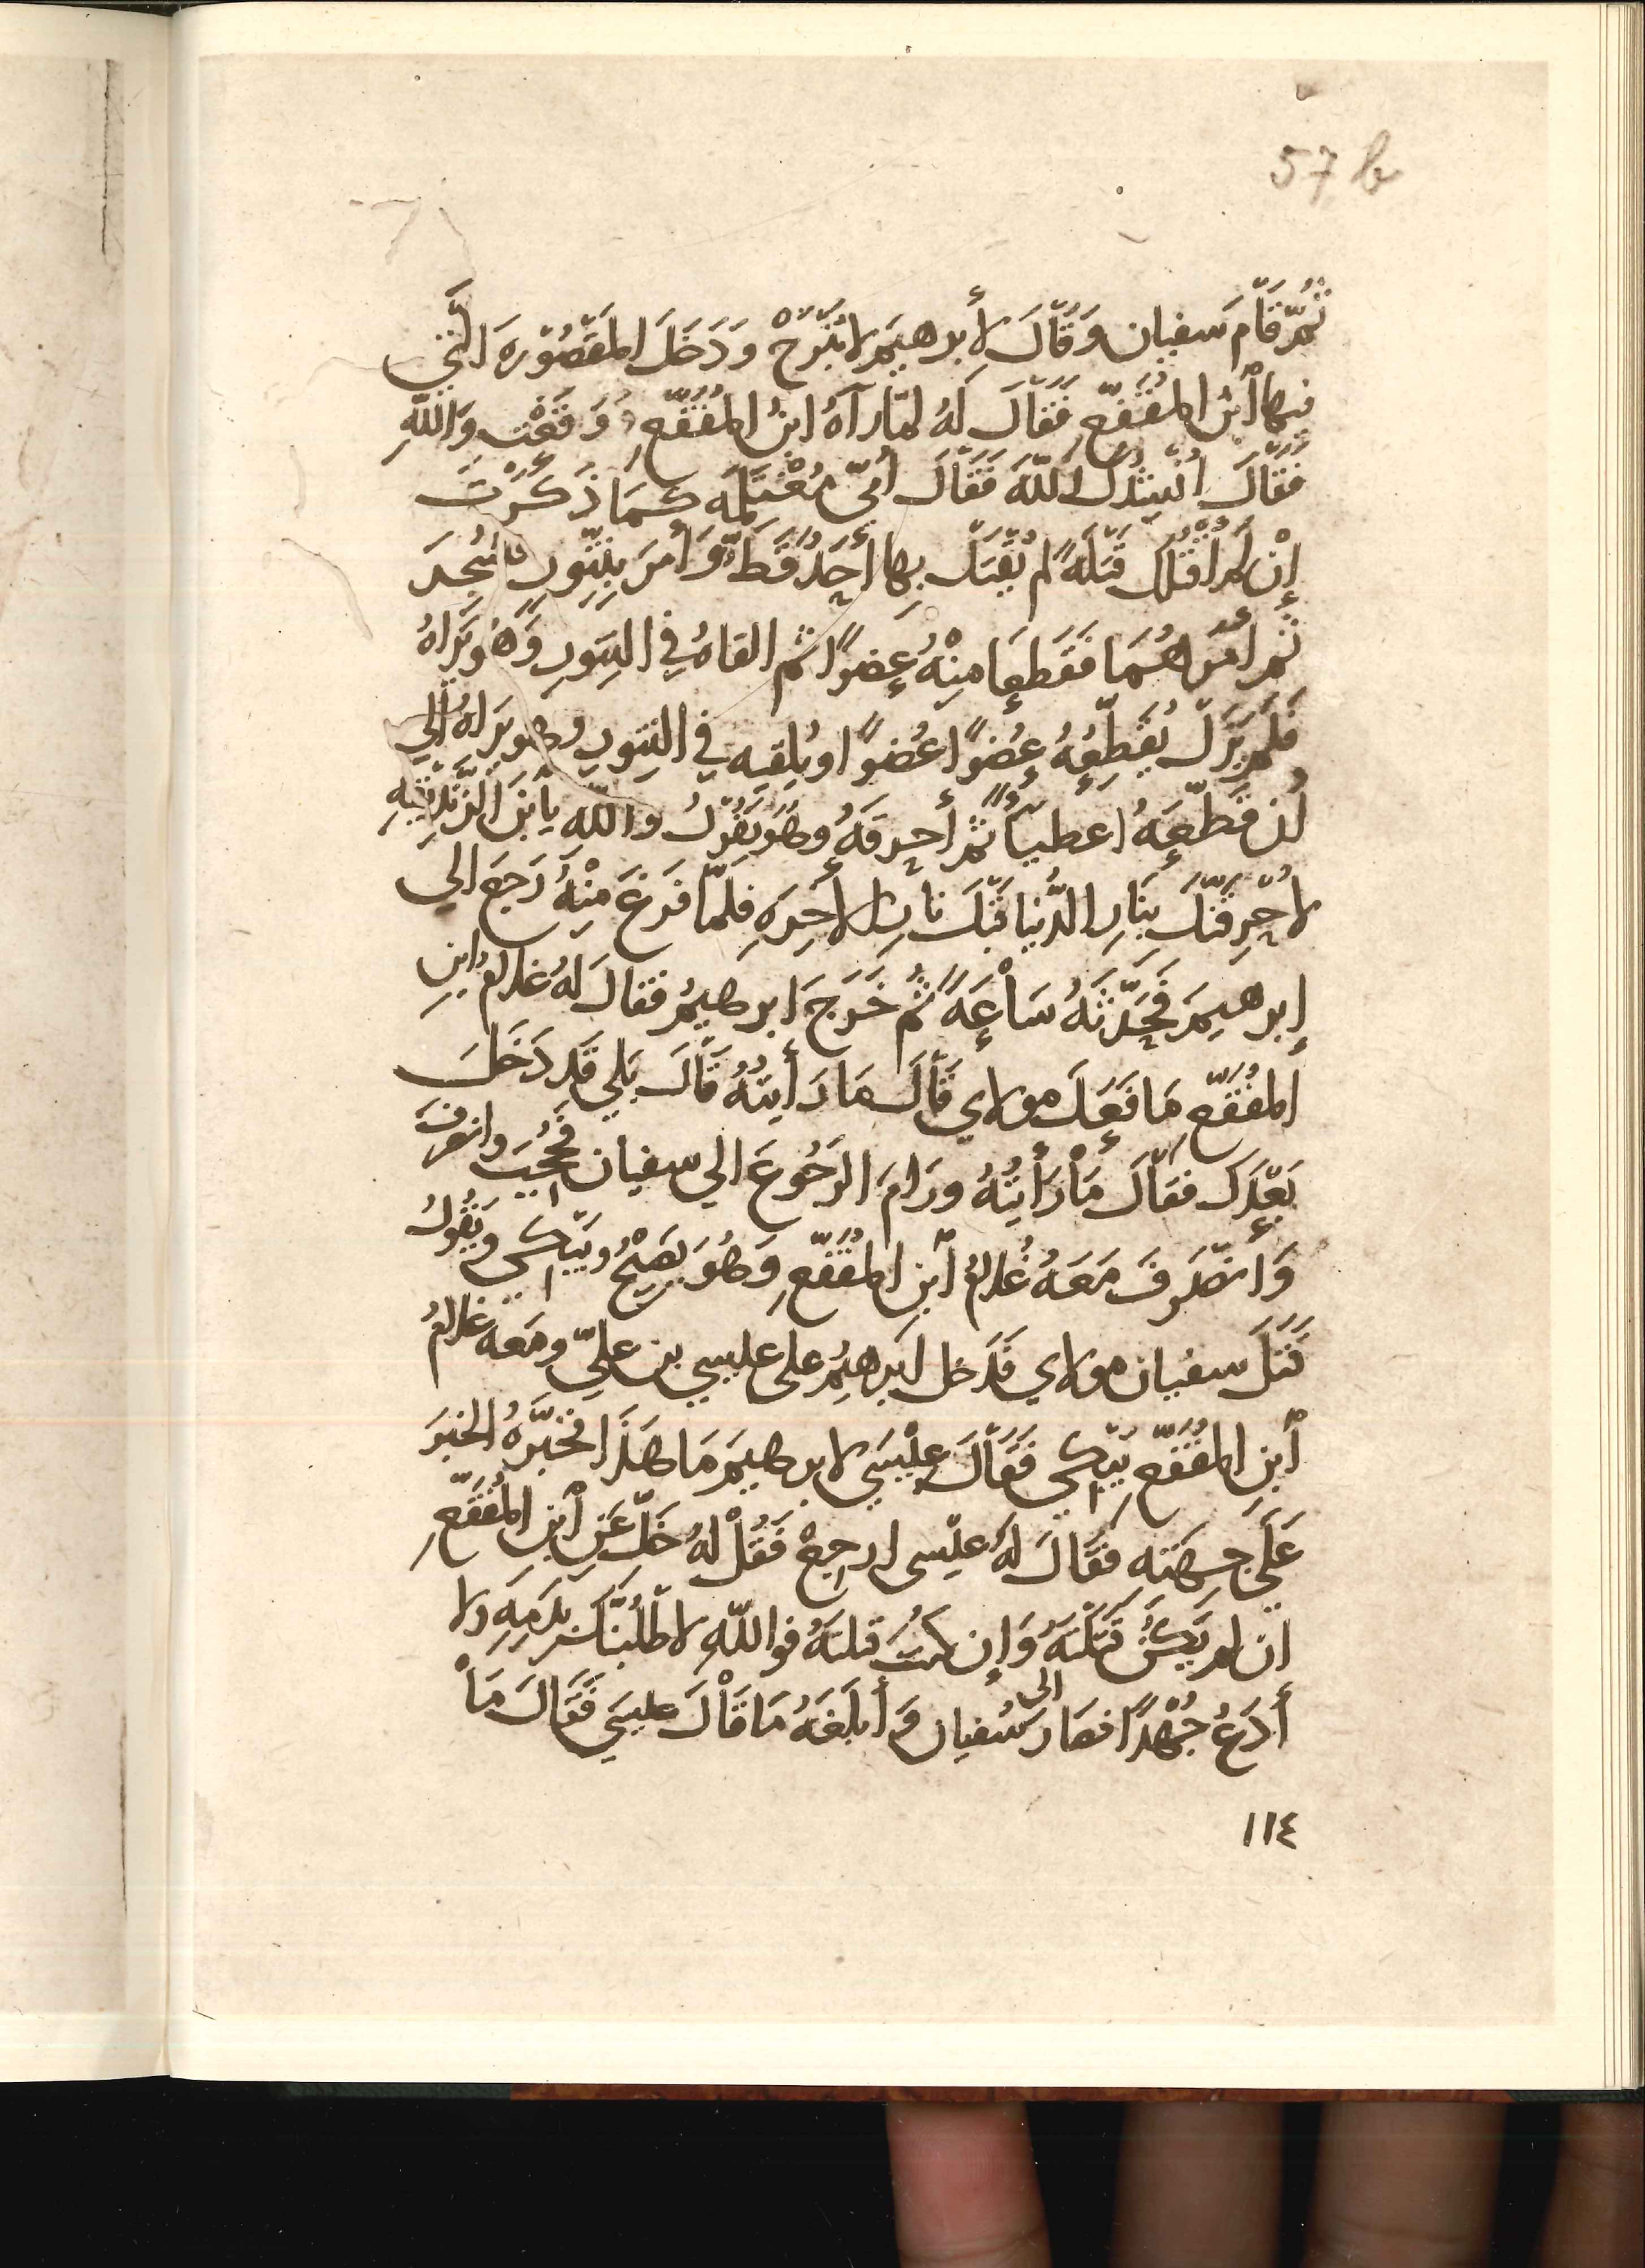 57 b
ثُمَّ قَامَ سفيان وَقَالَ لأبرهيمَ لا تَبْرَحْ وَدَخَلَ المَقْصُوْرَه الَّتي
فيها أبْنُ المُقَفّعِ فَقَالَ لَهُ لمّا رآهُ ابنُ المُقَفّعِ وَقَعْتَ وَاللّهِ
فَقَالَ أُنْشِدُكَ اللّهَ فَقَالَ أُمّي مُغْتَلِمَه كَمَا ذَكَرْتَ
إنْ لَم أَقْتُلْكَ قَتْلَةً لم يُقْتَل بِهَا أحَدٌ قَطّ وَأَمَرَ بِتَنّورٍ فَسُجِرَ
ثم أمرهُمَا فَقَطعَا مِنْهُ عِضوًا ثم القاهُ في التنورِ وَهُو يَرَاهُ
فَلَم يَزَل يُقَطِّعُهُ عُضوًا عُضوًا ويُلقيه في التنورِ وهو يَرَاهُ الي
أن قَطّعَهُ اعطيًا ثم أحرقَهُ وهُوَ يَقُوْلُ واللّه يابْنَ الزِّنْدِيْقِيهِ
لأُحرِقَنّكَ بِنَارِ الدُّنيا قَبْلَ نارِ الأخِرَهِ فلمّا فَرغَ مِنْهُ رَجعَ الي
إبرهيمَ فَحَدّثَهُ سَاْعَهً ثُم خَرَجَ ابرهيمُ فقالَ لهُ غلامُ ابنِ
المُقَفّعِ مَا فَعَلَ مولاي قَاْلَ مَا رَأيتُهُ قَاْلَ بَلي قَد دَخَلَ
بَعْدَكَ فقَالَ مَاْ رَأيْتُهُ ورَامَ الرَجُوعَ الي سفيان فَحُجِبَ وانصرف
وَانصَرَفَ مَعَهُ غُلامُ أبْنِ المُقَفّعِ وَهُوَ يَصِيْحُ ويَبكي وَيَقُولُ
قَتَلَ سفيان مولاي فَدَخل ابرهيمُ على عليسي بن عليّ ومَعه غلامُ
أبن المُقَفّعِ يَبْكي فَقَاْلَ عليْسَي لابرهيمَ مَا هَذَا فخبّرَهُ الخبَرَ
عَلَي جِهَتهِ فقَالَ لهُ عليسى ارجِعْ فَقُلْ لهُ خَلِّ عَنِ أبْنِ المُقَفّعِ
ان لم يَكُنْ قَتَلْتَهُ وَإن كنتَ قتلتَهُ فواللّهِ لأطلُبَنّكَ بِدَمِهِ ولا
أدَعُ جُهْدًا فصار الى سُفيان وَأبلَغهُ مَا قَاْلَ عليسَي فَقَالَ مَاْ
١١٤